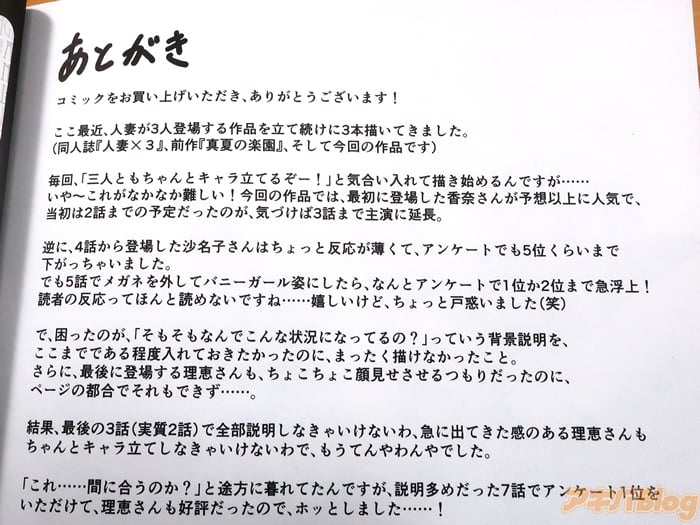 あとがき
コミックをお買い上げいただき、ありがとうございます！
ここ最近、人妻が3人登場する作品を立て続けに3本描いてきました。
(同人誌『人妻×3』、前作『真夏の楽園』、そして今回の作品です)
毎回、「三人ともちゃんとキャラ立てるぞー！」と気合い入れて描き始めるんですが……
いや〜これがなかなか難しい！今回の作品では、最初に登場した香奈さんが予想以上に人気で、
当初は2話までの予定だったのが、気づけば3話まで主演に延長。
逆に、4話から登場した沙名子さんはちょっと反応が薄くて、アンケートでも5位くらいまで
下がっちゃいました。
でも5話でメガネを外してバニーガール姿にしたら、なんとアンケートで1位か2位まで急浮上！
読者の反応ってほんと読めないですね……嬉しいけど、ちょっと戸惑いました(笑)
で、困ったのが、「そもそもなんでこんな状況になってるの？」っていう背景説明を、
ここまでである程度入れておきたかったのに、まったく描けなかったこと。
さらに、最後に登場する理恵さんも、ちょこちょこ顔見せさせるつもりだったのに、
ページの都合でそれもできず……。
結果、最後の3話(実質2話)で全部説明しなきゃいけないわ、急に出てきた感のある理恵さんも
ちゃんとキャラ立てしなきゃいけないわで、もうてんやわんやでした。
「これ……間に合うのか？」と途方に暮れてたんですが、説明多めだった7話でアンケート1位を
いただけて、理恵さんも好評だったので、ホッとしました……！
アキバBlog